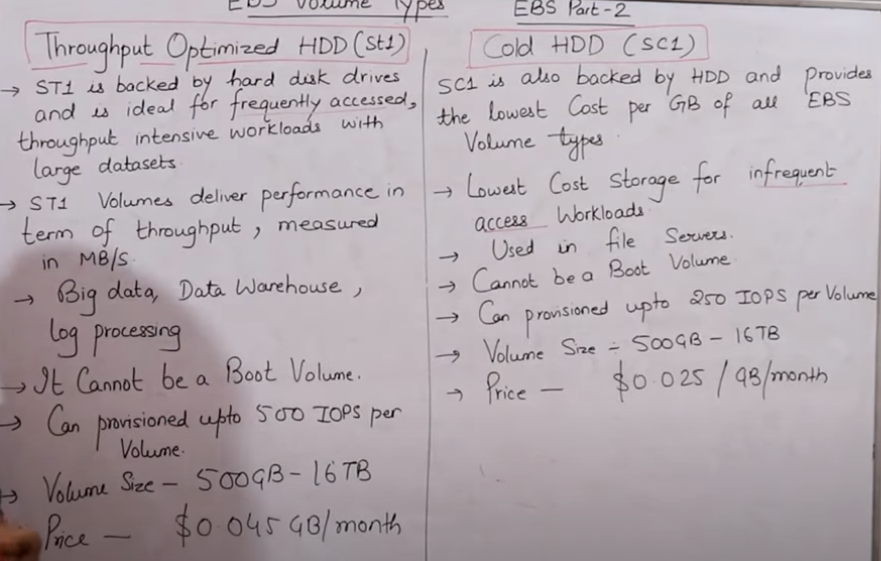 EBS Volume Types
EBS Part-2
Throughput Optimized HDD (St1)
→ ST1 is backed by hard disk drives
and is ideal for frequently accessed,
throughput intensive workloads with
large datasets.
→ ST1 Volumes deliver performance in
term of throughput, measured
in MB/S.
→ Big data, Data Warehouse,
log processing
→ It Cannot be a Boot Volume.
→ Can provisioned upto 500 IOPS per
Volume.
→ Volume Size - 500GB - 16TB
Price — $0.045 GB/month
Cold HDD (SC1)
SC1 is also backed by HDD and provides
the lowest Cost per GB of all EBS
Volume types.
→ Lowest Cost Storage for infrequent
access Workloads.
→ Used in file Servers.
→ Cannot be a Boot Volume.
→ Can provisioned upto 250 IOPS per Volume
→ Volume Size - 500GB - 16TB
→ Price — $0.025 / GB/month